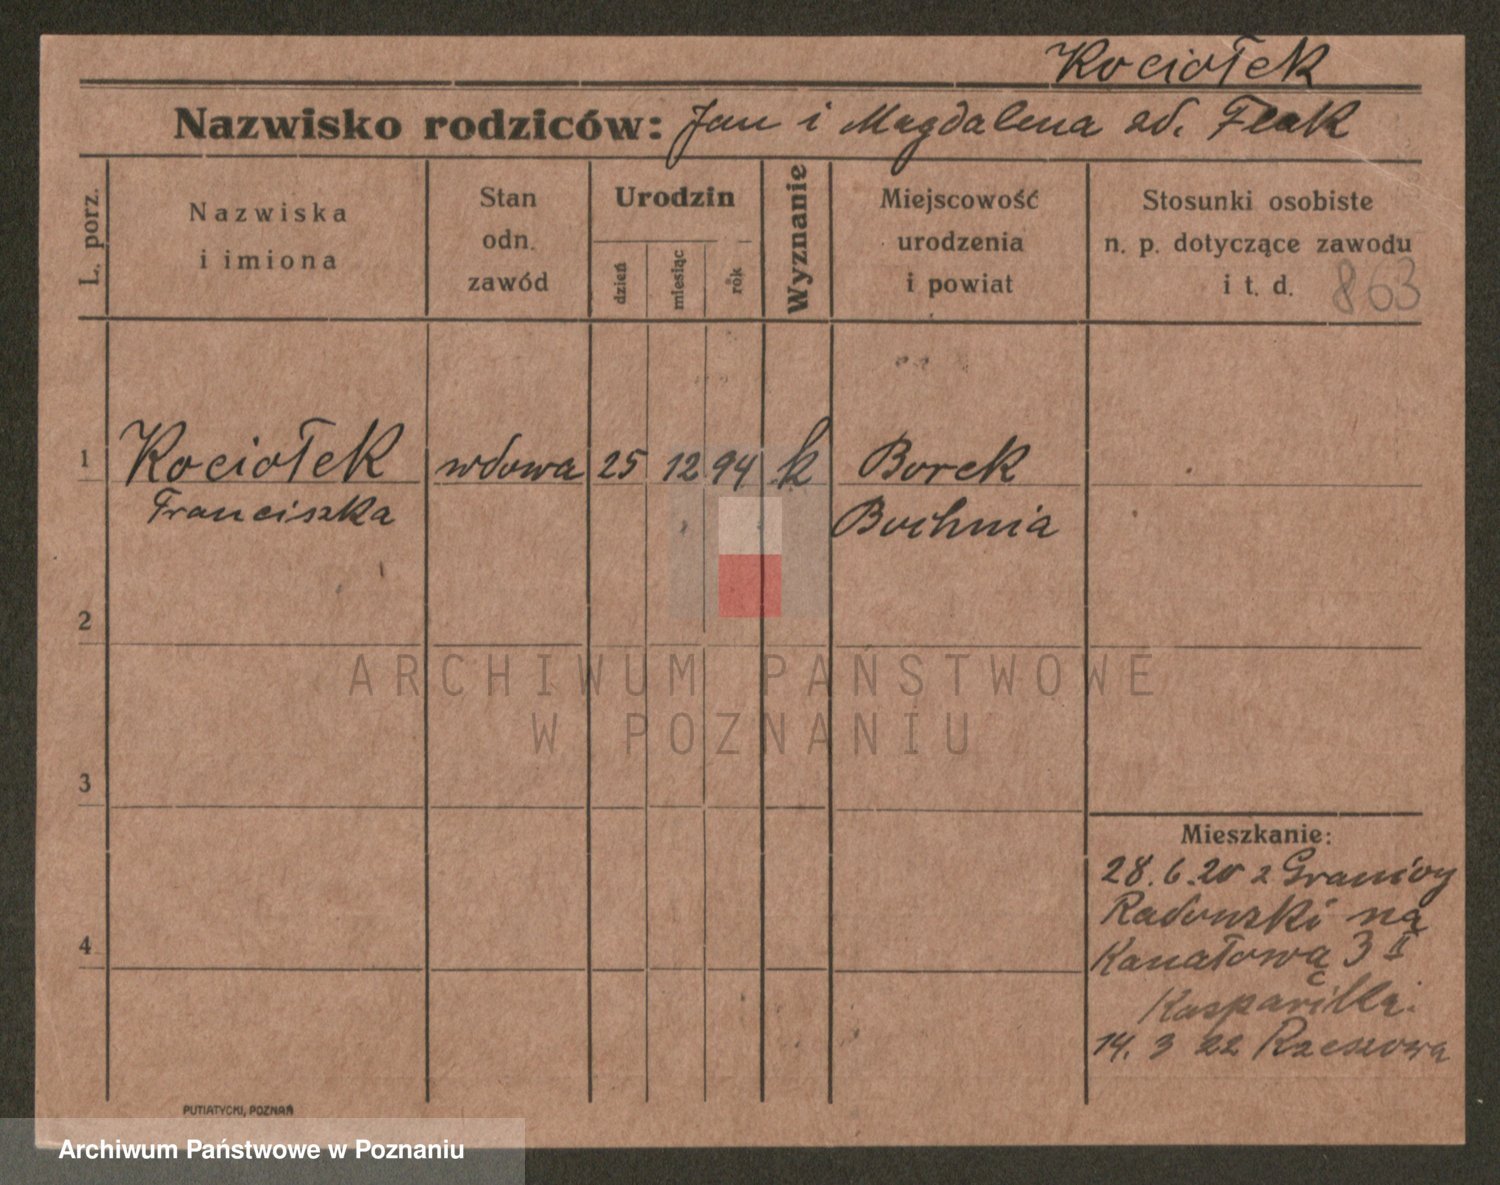 Kociołek
Nazwisko rodziców: Jan i Magdalena zd. Flak
L. porz.
Nazwiska
i imiona
Stan
odn.
zawód
Urodzin
dzień
miesiąc
rok
Wyznanie
Miejscowość
urodzenia
i powiat
Stosunki osobiste
n. p. dotyczące zawodu
i t. d. 863
1 Kociołek wdowa 25 12 94 k Borek
Franciszka Bochnia
2
3
4
Mieszkanie:
28.6.20 z
na
Kanałową 3 II
14. 3 22 Rzeszowa
PUTIATYCKI, POZNAŃ
ARCHIWUM PAŃSTWOWE
W POZNANIU
Archiwum Państwowe w Poznaniu